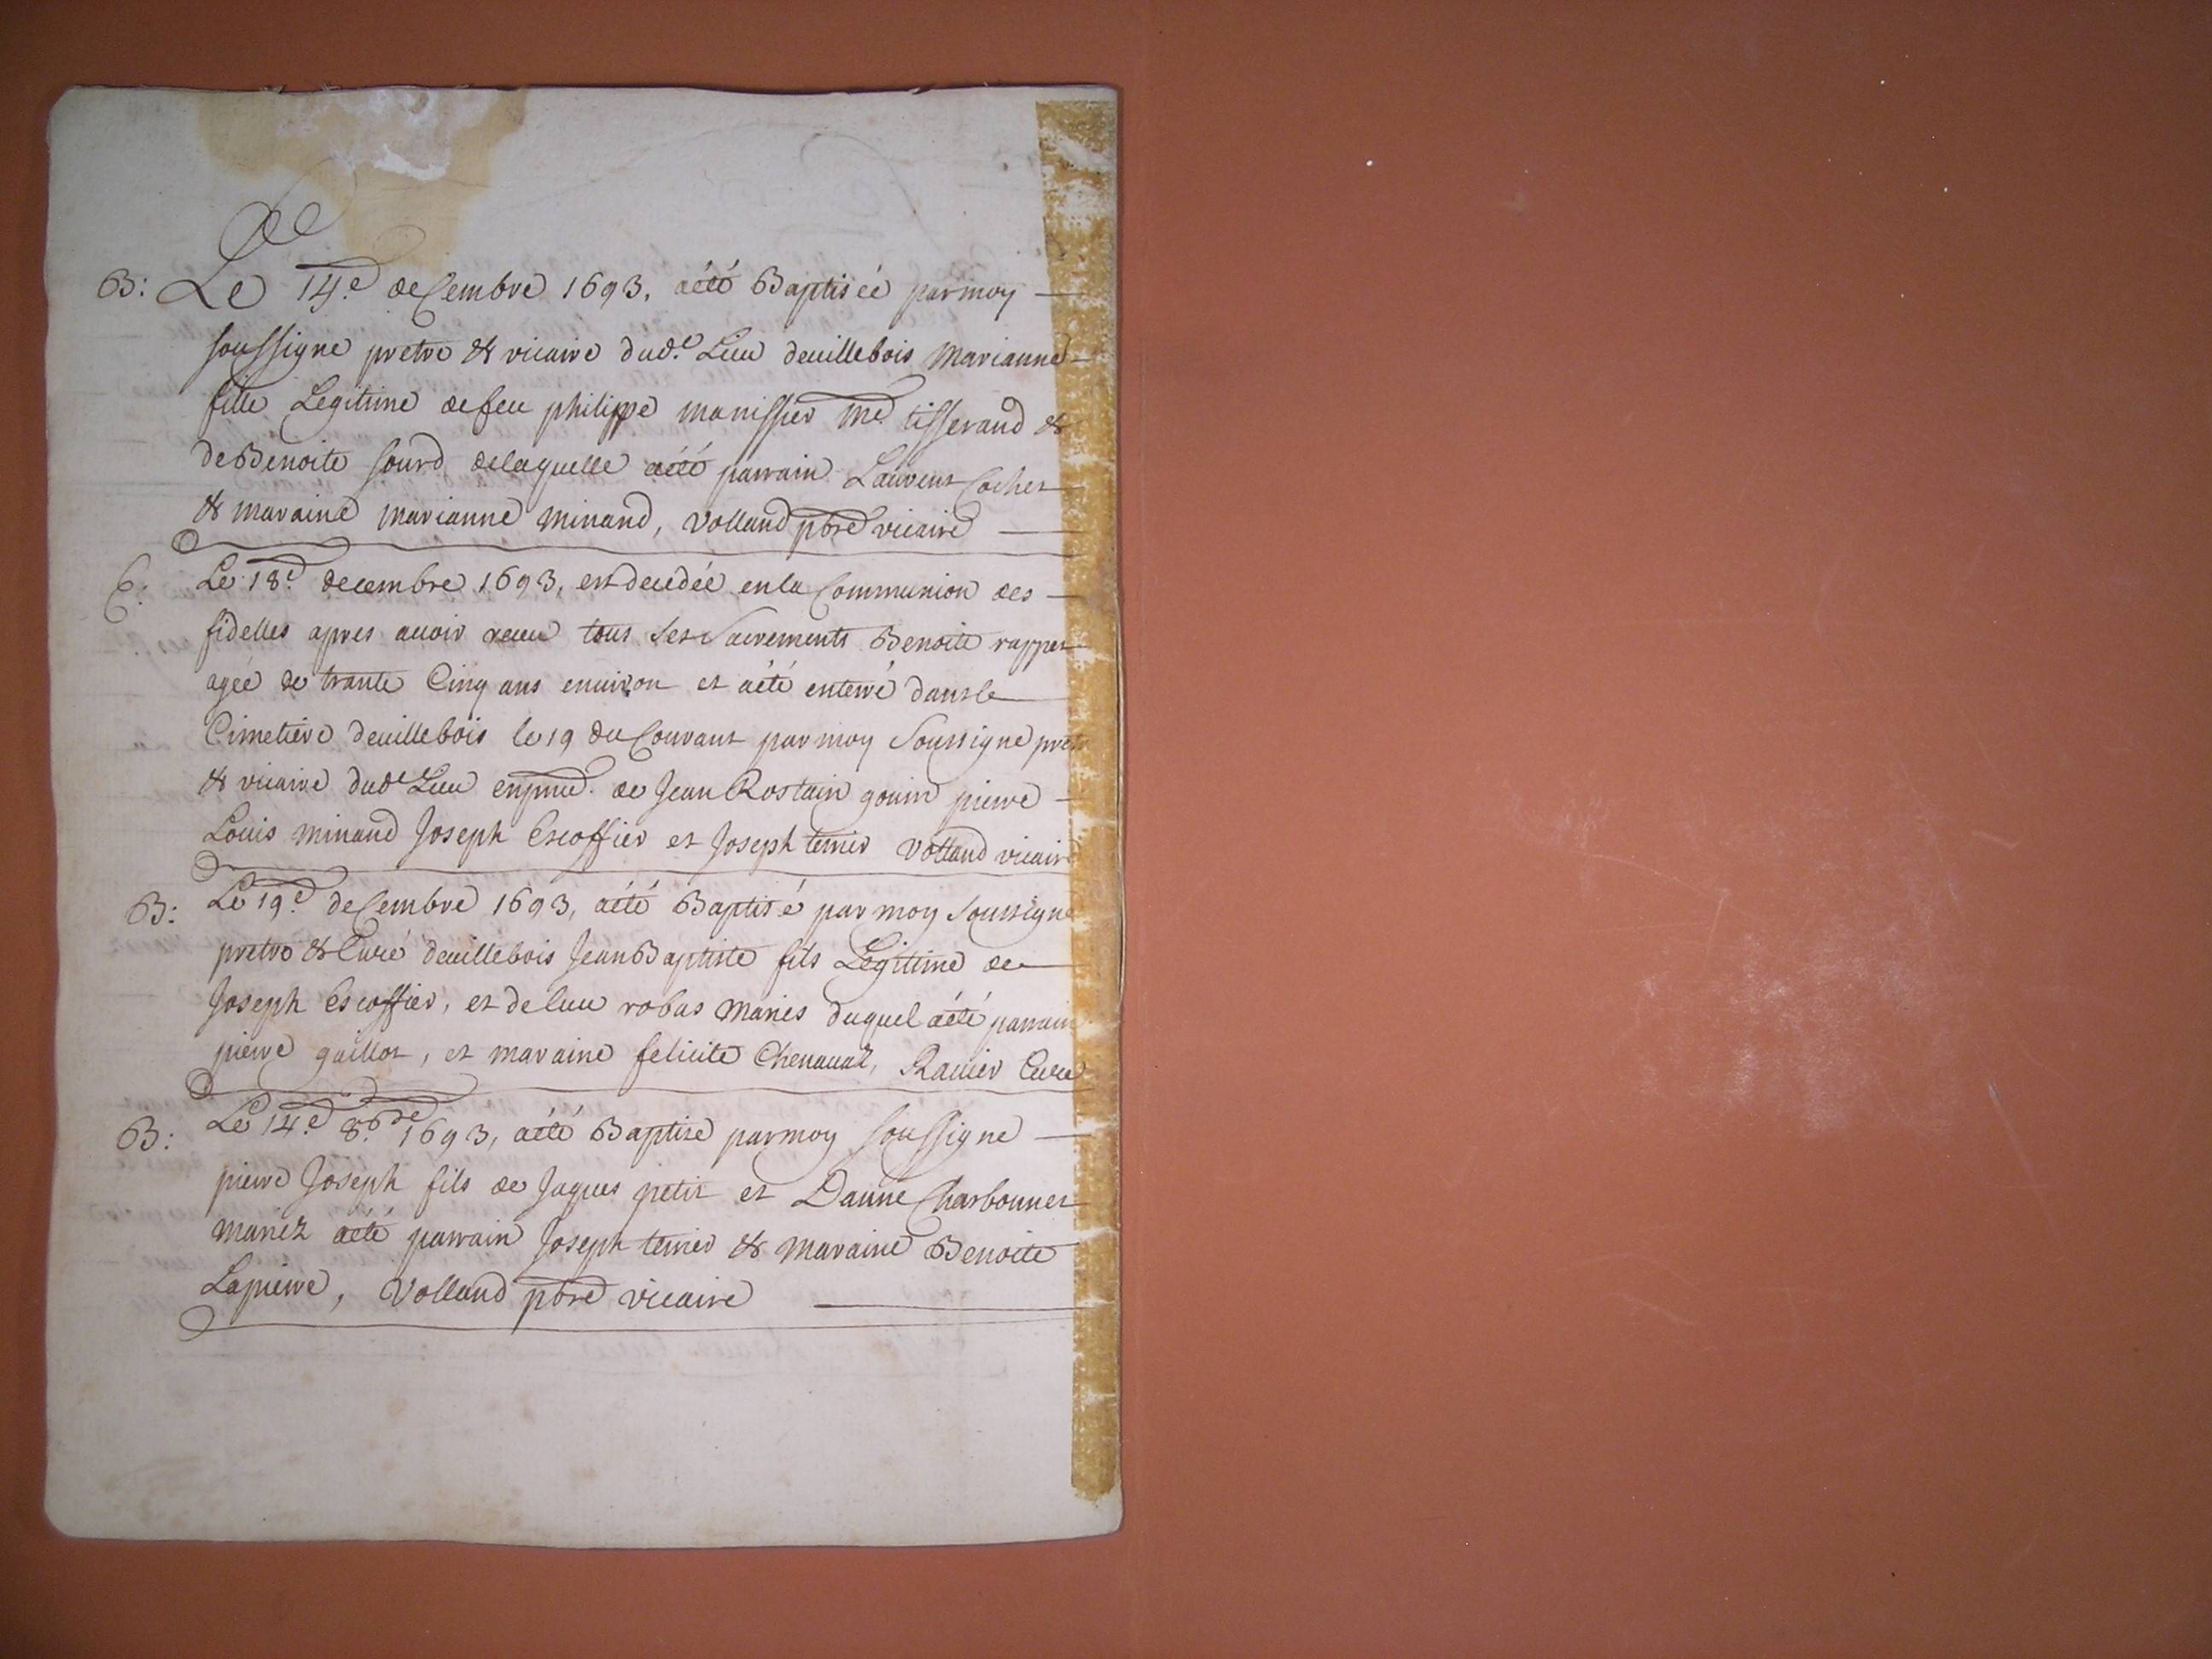 B: Le 14.e decembre 1693, aété Baptisée parmoy
soussigne pretre & vicaire dud.t Lieu deuillebois Marianne
fille Legitime defeu philippe manissier me tisserand &
deBenoite sourd delaquelle aété parrain Laurent Cochet
& maraine marianne minand, Volland pbre vicaire
E: Le 18.e decembre 1693, est decedée enla Communion des
fidelles apres auoir receu tous ses sacrements Benoite rappet
agée de trante Cinq ans enuiron et aété enterré dansle
Cimetiere deuillebois le 19 du Courant parmoy soussigne pretre
& vicaire dud.t Lieu de Jean Rostain gonin pierre
Louis minand Joseph Escoffier et Joseph terrier Volland vicaire
B: Le 19.e decembre 1693, aété Baptisé par moy soussigne
pretre & Curé deuillebois JeanBaptiste fils Legitime de
Joseph Escoffier, et deluce robas maries duquel aété parrain
pierre guillot, et maraine felicite Chenauaz, Rauier Curé
B: Le 14.e 8.bre 1693, aété Baptisé parmoy soussigne
pierre Joseph fils de Jaques petit et Danne Charbonnet
mariez aété parrain Joseph terrier & maraine Benoite
Lapierre, Volland pbre vicaire